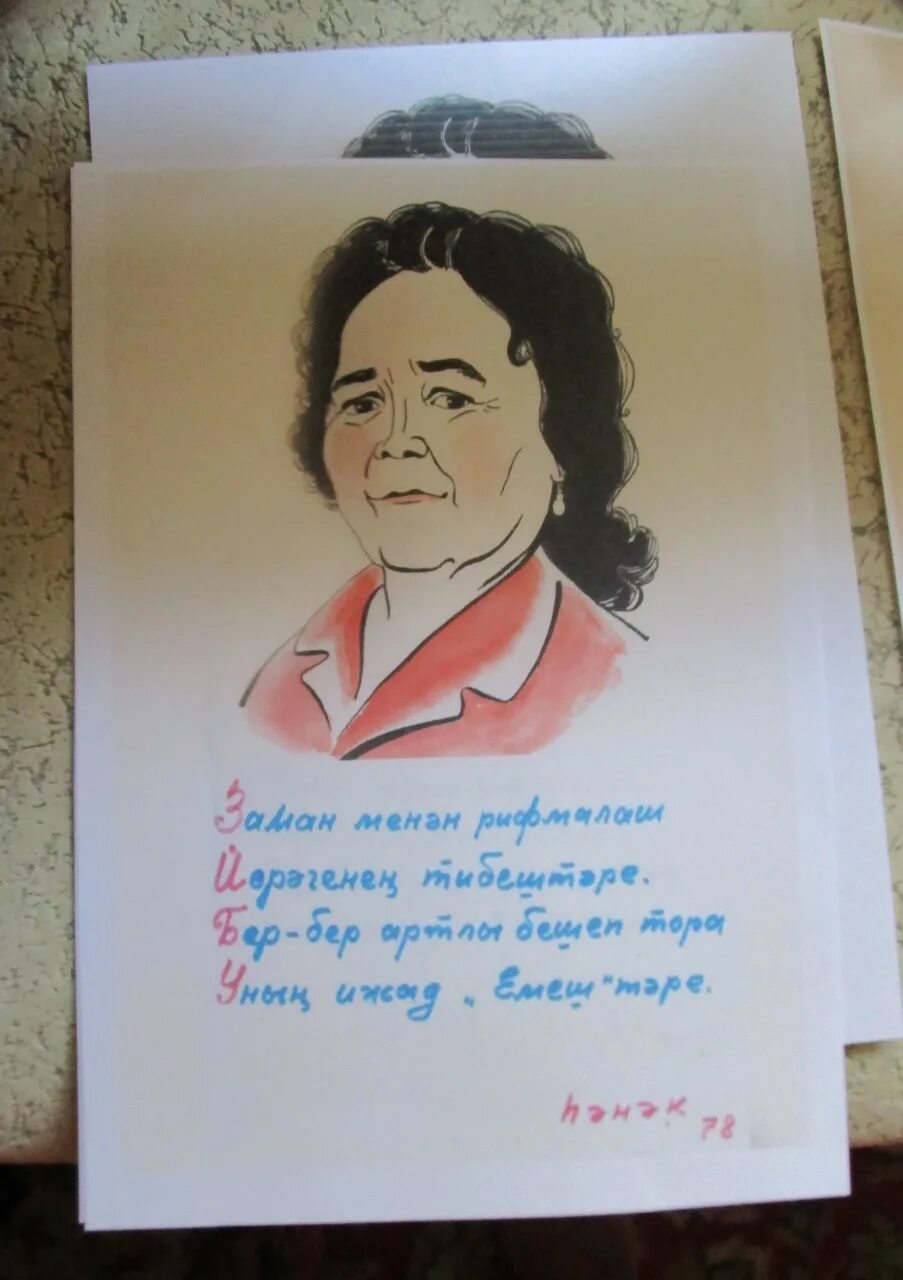 Заман менән рифмалаш
Йөрәгенең тибештәре.
Бер-бер артлы бешеп тора
Уның ижад „Емеш“тәре.
Һәнәк
78